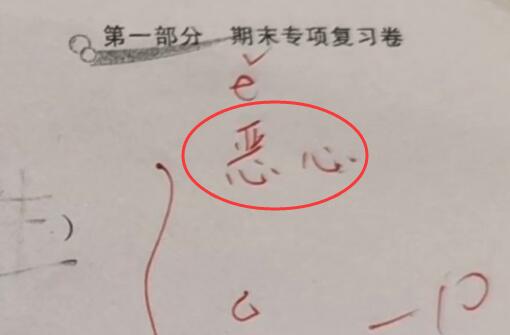 第一部分 期末专项复习卷
ě
恶心
)